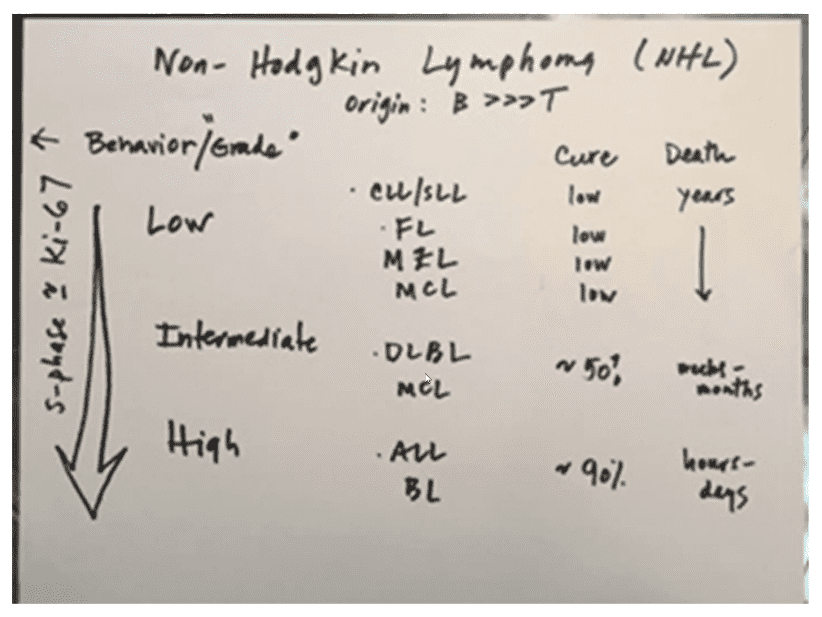 Non-Hodgkin Lymphoma (NHL)
Origin: B >>>T
"Behavior/Grade" Cure Death
Low · CLL/SLL low years
· FL low
MZL low
MCL low
Intermediate · DLBL ~50% weeks-months
MCL
High · ALL ~90% hours-days
BL
↑ S-phase ≃ Ki-67